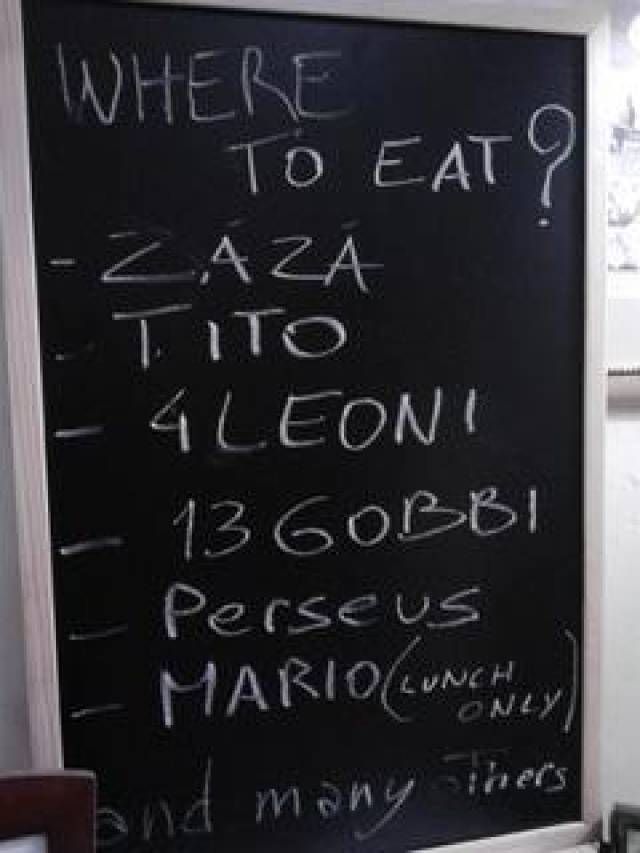 WHERE
TO EAT?
- ZÁZÁ
- TITO
- 4 LEONI
- 13 GOBBI
- Perseus
- MARIO (LUNCH
ONLY)
and many others